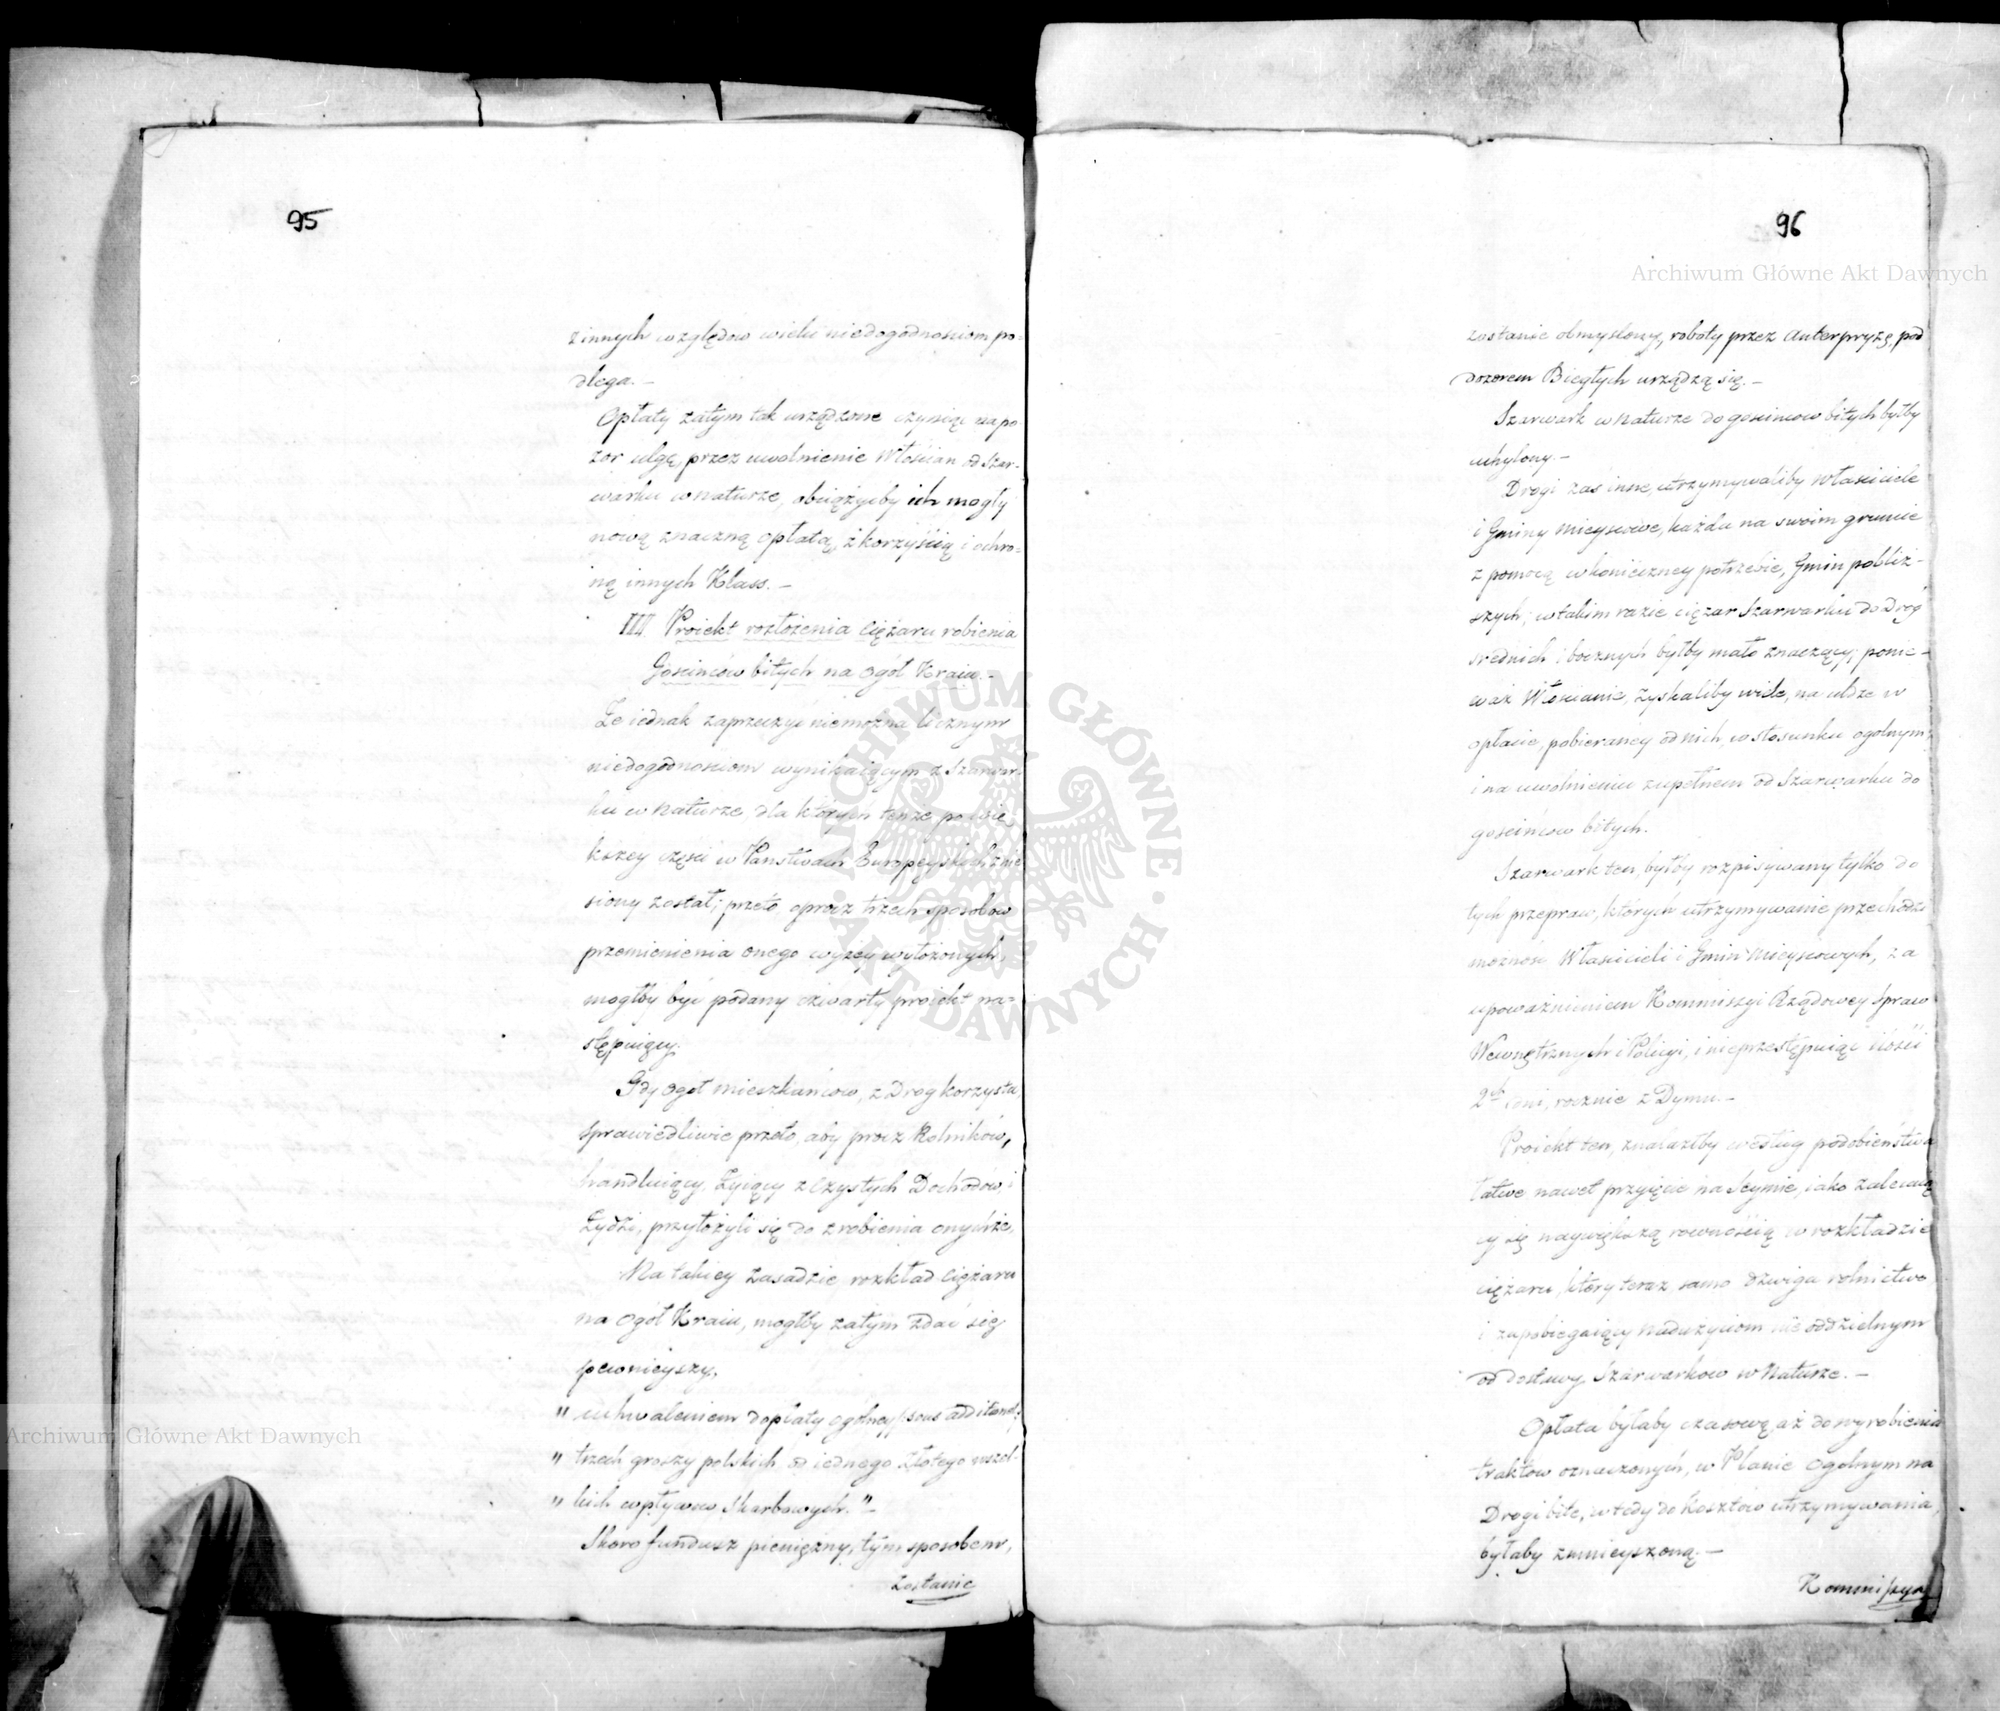 95
z innych względow wielu niedogodnosciom po=
dlega. —
Opłaty zatym tak urządzone czyniąc na po=
zor ulgę, przez uwolnienie Włościan od Szar=
warku w naturze, obciążyćby ich mogły
nową znaczną opłatą, z korzyścią i ochro=
ną innych Klass. —
III Proiekt rozłożenia ciężaru robienia
Gościnców bitych na ogół Kraiu. —
Ze iednak zaprzeczyć niemożna licznym
niedogodnosciom wynikaiącym z Szarwar=
ku w naturze, dla których tenże po wię=
kszey części w Panstwach Europeyskich znie
siony został; przeto oprocz trzech sposobow
przemienienia onego wyżey wyłożonych,
mogłby być podany czwarty proiekt na=
stępuiący.
Gdy ogół mieszkańcow, z Drog korzysta,
sprawiedliwie przeto, aby procz Rolników,
handluiący, Żyiący z czystych Dochodów, i
Żydzi, przyłożyli się do zrobienia onychże.
Na takiey zasadzie, rozkład ciężaru
na ogół Kraiu, mogłby zatym zdać się
pewnieyszy,
" uchwaleniem dopłaty ogólney /: sous additionels :/
" trzech groszy polskich od iednego Złotego wszel=
" kich wpływow Skarbowych." —
Skoro fundusz pieniężny, tym sposobem,
zostanie
96
zostanie obmyslony, roboty przez Anterpryzę, pod
dozorem Biegłych urządzą się. —
Szarwark w naturze do goscincow bitych byłby
uchylony. —
Drogi zaś inne, utrzymywaliby Właściciele
i Gminy mieyscowe, każda na swoim gruncie
z pomocą w konieczney potrzebie, Gmin pobliż=
szych; w takim razie ciężar Szarwarku do Drog
srednich i bocznych byłby mało znaczący; ponie=
waż Włościanie, zyskaliby wiele, na uldze w
opłacie, pobieraney od nich, w stosunku ogolnym,
i na uwolnieniu zupełnem od Szarwarku do
gościńcow bitych.
Szarwark ten, byłby rozpisywany tylko do
tych przepraw, których utrzymywanie przechodzi
możność Właścicieli i Gmin mieyscowych, za
upoważnieniem Kommissyi Rządowey Spraw
Wewnętrznych i Policyi, i nieprzestępuiąc ilości
2ch dni, rocznie z Dymu. —
Proiekt ten, znalazłby według podobieństwa
łatwe nawet przyięcie na Seymie, iako zalecaią
cy się naywiększą rownością w rozkładzie
ciężaru, który teraz, samo dzwiga rolnictwo,
i zapobiegaiący nadużyciom nie oddzielnym
od dostawy Szarwarkow w Naturze. —
Opłata byłaby czasową, aż do wyrobienia
traktow oznaczonych, w Planie Ogolnym na
Drogi bite, wtedy do kosztów utrzymywania,
byłaby zmnieyszoną. —
Kommissya
Archiwum Główne Akt Dawnych
Archiwum Główne Akt Dawnych
ARCHIWUM GŁÓWNE · AKT DAWNYCH ·